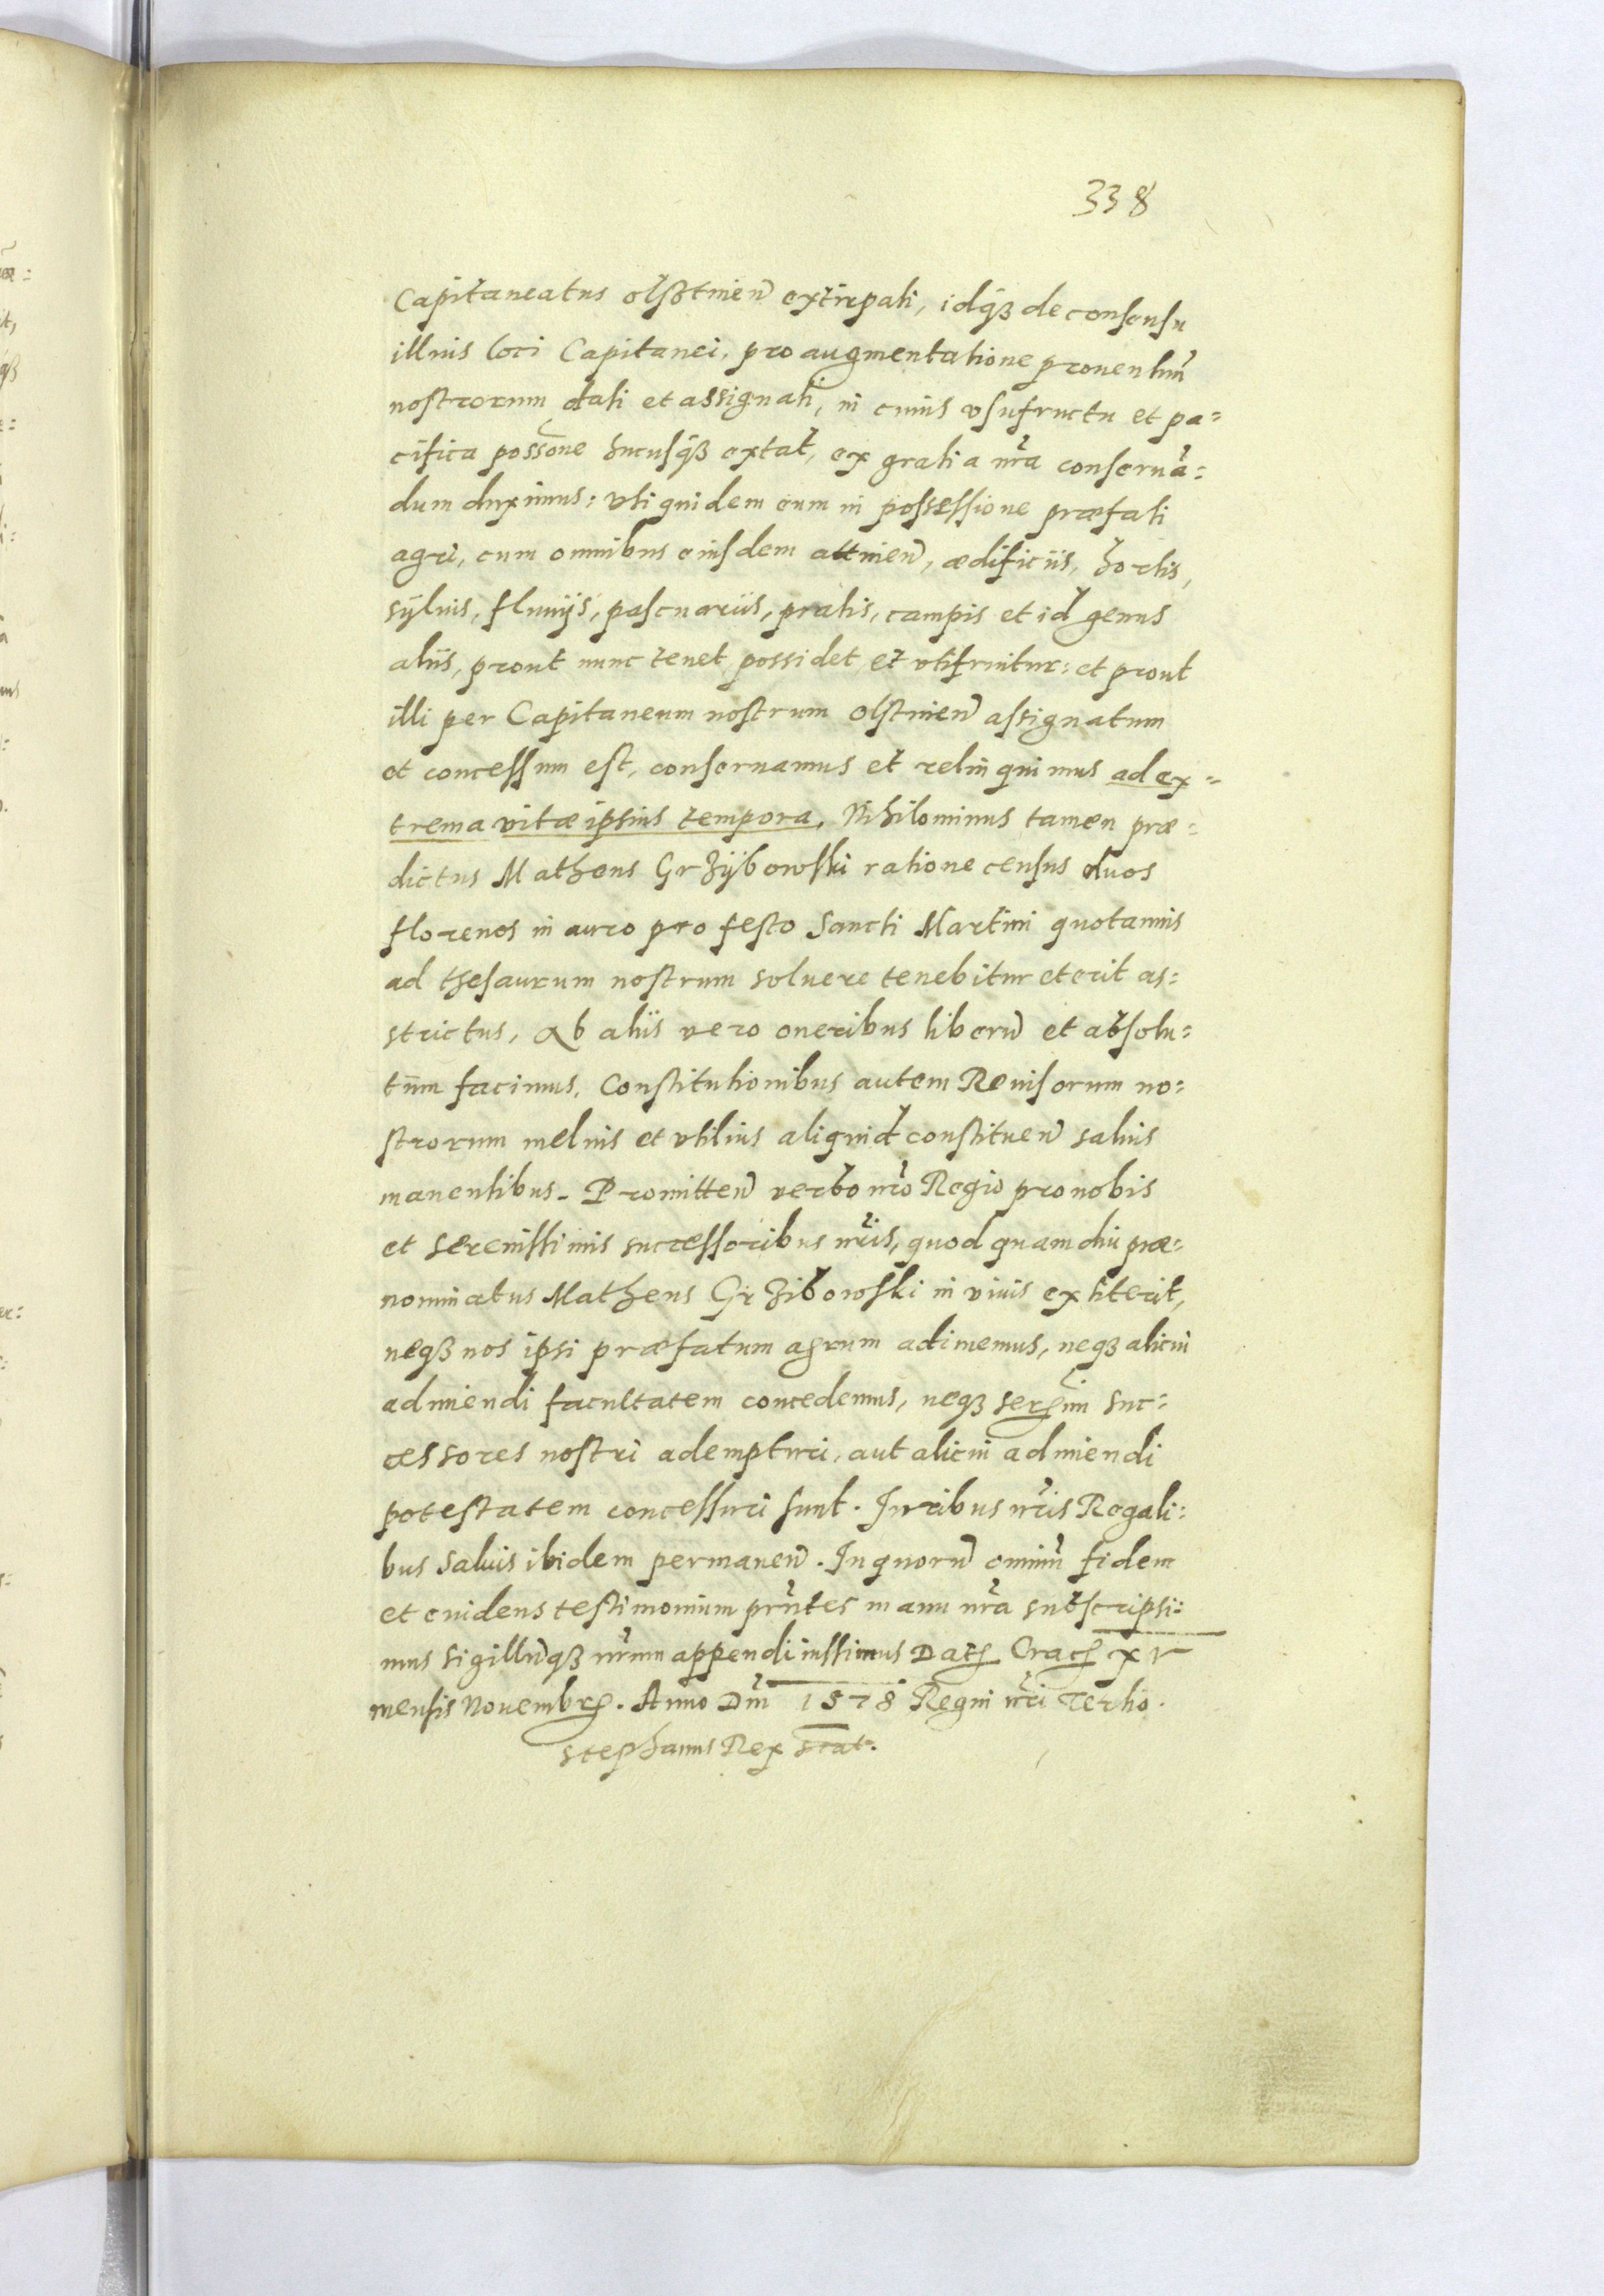 338
Capitaneatus olsotinen̄ extirpati, idq̃ꝫ de consensu
illius loci Capitanei, pro augmentatione prouentuū
nostrorum dati et assignati, in cuius vsufructu et pa=
cifica possone hucusq̃ꝫ extat, ex gratia nr̃a conseruā=
dum duximus: vti quidem eum in possessione præfati
agri, cum omnibus eiusdem attinen̄, ædificiis, hortis,
syluis, fluuijs, pascuariis, pratis, campis et id genus
aliis, prout nunc tenet possidet et vtifruitur: et prout
illi per Capitaneum nostrum olstinen̄ assignatum
et concessum est, conseruamus et relinquimus ad ex=
trema vitæ ipsius tempora. Nihilominus tamen præ=
dictus Matheus Grzÿbowski ratione census duos
florenos in auro pro festo Sancti Martini quotannis
ad thesaurum nostrum soluere tenebitur et erit as=
strictus, Ab aliis vero oneribus liberū et absolu=
tum facimus. Constitutionibus autem Reuisorum no=
strorum melius et vtilius aliquid constituen̄ saluis
manentibus. Promitten̄ verbo nr̃o Regio pro nobis
et serenissimis successoribus nr̃is, quod quamdiu præ=
nominatus Matheus Grzibowski in viuis extiterit,
neqꝫ nos ipsi præfatum agrum adimemus, neqꝫ alicui
adimendi facultatem concedemus, neqꝫ serꝫmi suc=
cessores nostri adempturi, aut alicui adimendi
potestatem concessuri sunt. Iuribus nr̃is Regali=
bus saluis ibidem permanen̄. In quorū omniū fidem
et euidens testimonium pr̃ntes manu nr̃a subscripsi=
mus sigillūqꝫ nr̃um appendi iussimus Datꝫ Cracꝫ xv
mensis Nouembrꝫ. Anno Dm̄ 1578 Regni nr̃i Tertio.
Stephanus Rex scat.